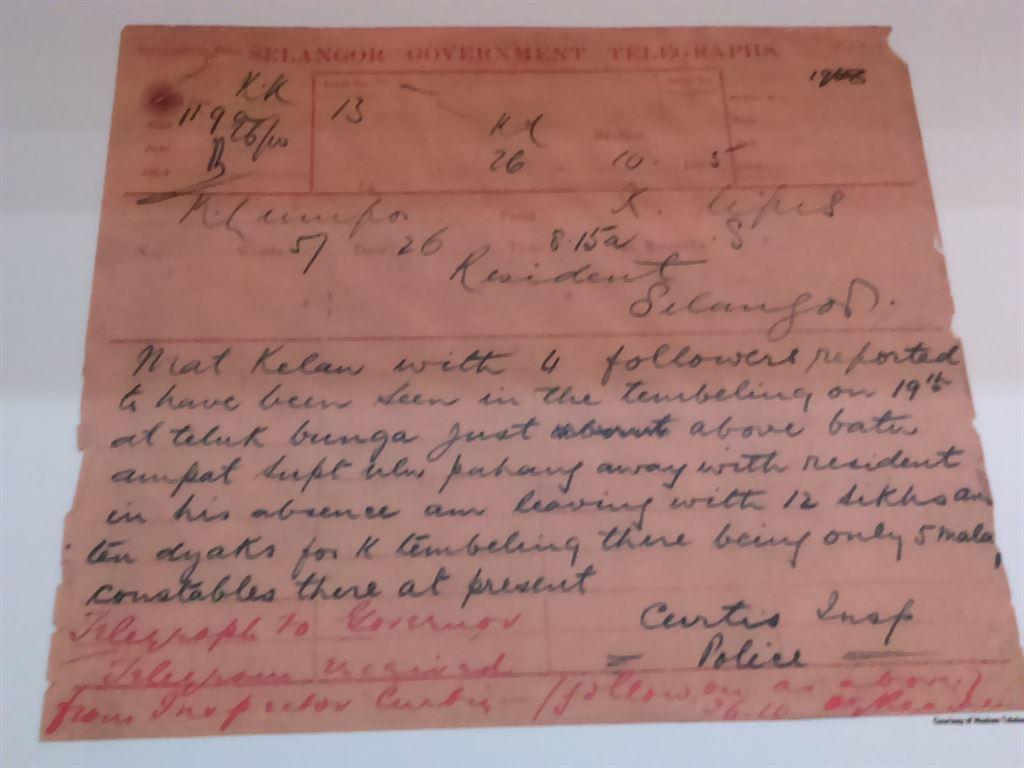 SELANGOR GOVERNMENT TELEGRAPHS.
K.K
13
KL
26 10. 5
26/10
K. Lumpor K. Lipis
57 26 8.15a S.
Resident
Selangor.
Mat Kelau with 4 followers reported
to have been seen in the tembeling on 19th
at teluk bunga just above batu
ampat supt ulu pahang away with resident
in his absence am leaving with 12 sikhs an
ten dyaks for K tembeling there being only 5 mala
constables there at present
Curtis Insp
Police
Telegraph to Governor
Telegram received
from Inspector Curtis (follow on as above)
26.10
Courtesy of